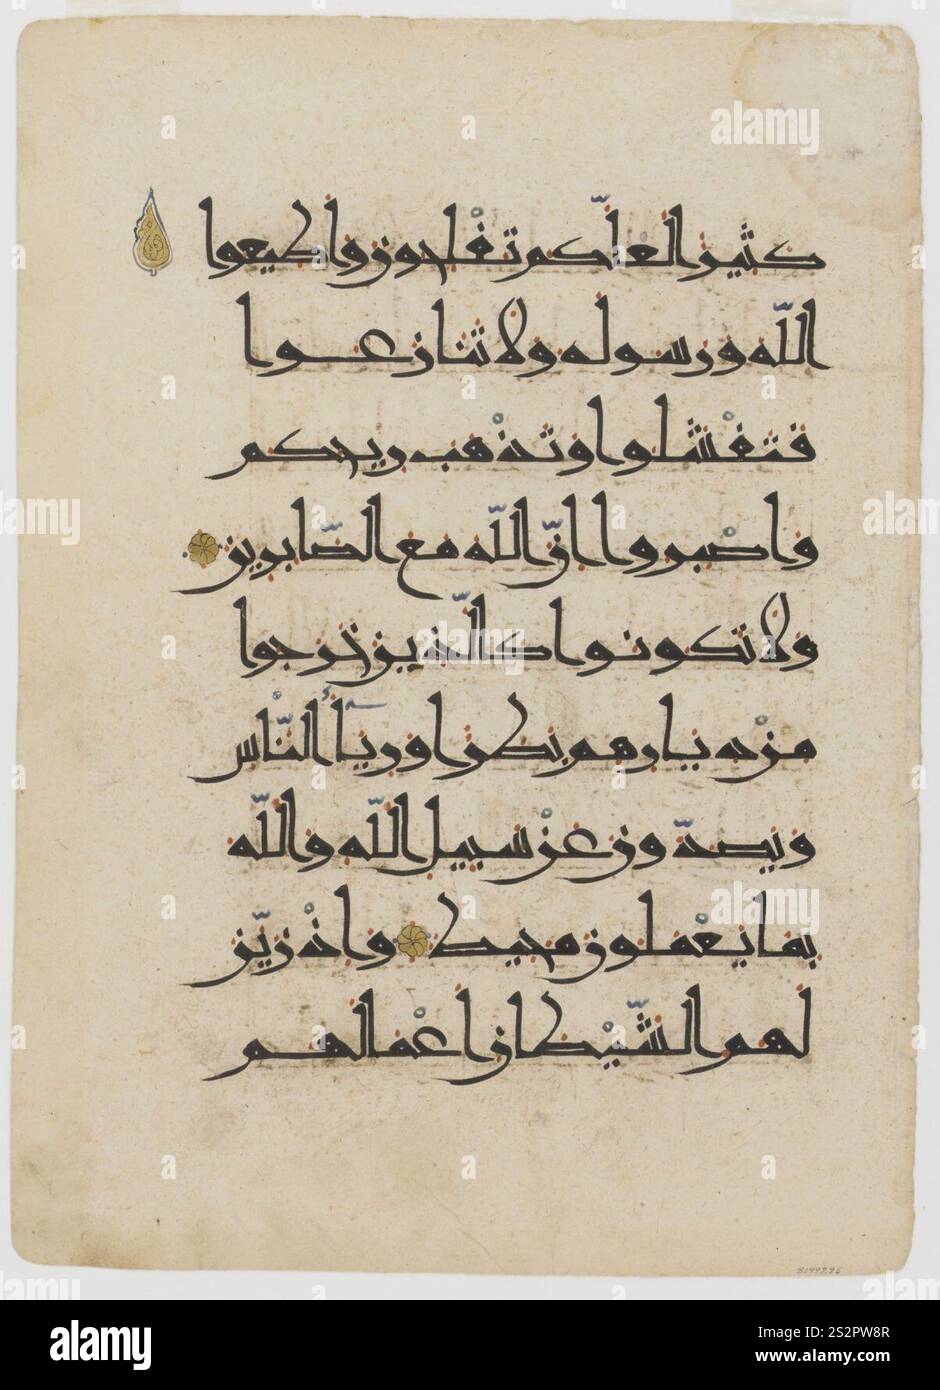 كثيرا لعلكم تفلحون واطيعوا
الله ورسوله ولا تنازعوا
فتفشلوا وتذهب ريحكم
واصبروا ان الله مع الصابرين
ولا تكونوا كالذين خرجوا
من ديارهم بطرا ورئاء الناس
ويصدون عن سبيل الله والله
بما يعملون محيط واذ زين
لهم الشيطان اعمالهم
alamy
Image ID: 2S2PW8R
www.alamy.com